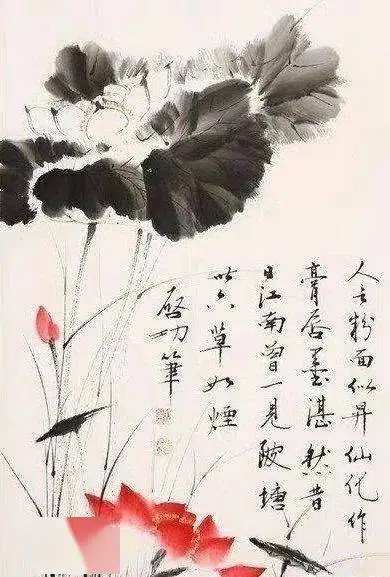 人言粉面似昇仙化作
膏唇墨湛然昔
日江南曾一見陂塘
草如煙
啓功筆